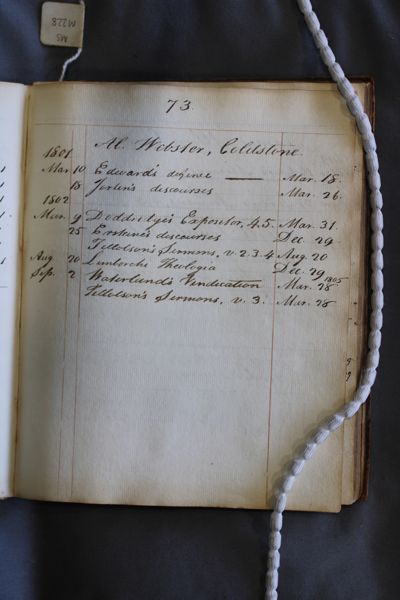 MS
M228
73.
Al. Webster, Coldstone.
1801
Mar. 10 Edward's defense — Mar. 18.
18 Jortin's discourses Mar. 26.
1802
Mar. 9 Doddridge's Expositor, 4,5. Mar. 31.
25 Erskine's discourses Dec. 29
Tillotson's Sermons, v. 2.3.4 Aug. 20
Aug. 20 Limborchi Theologia Dec. 29
1805
Sep. 2 Waterland's Vindication Mar. 28
Tillotson's Sermons, v. 3. Mar. 28
9
9